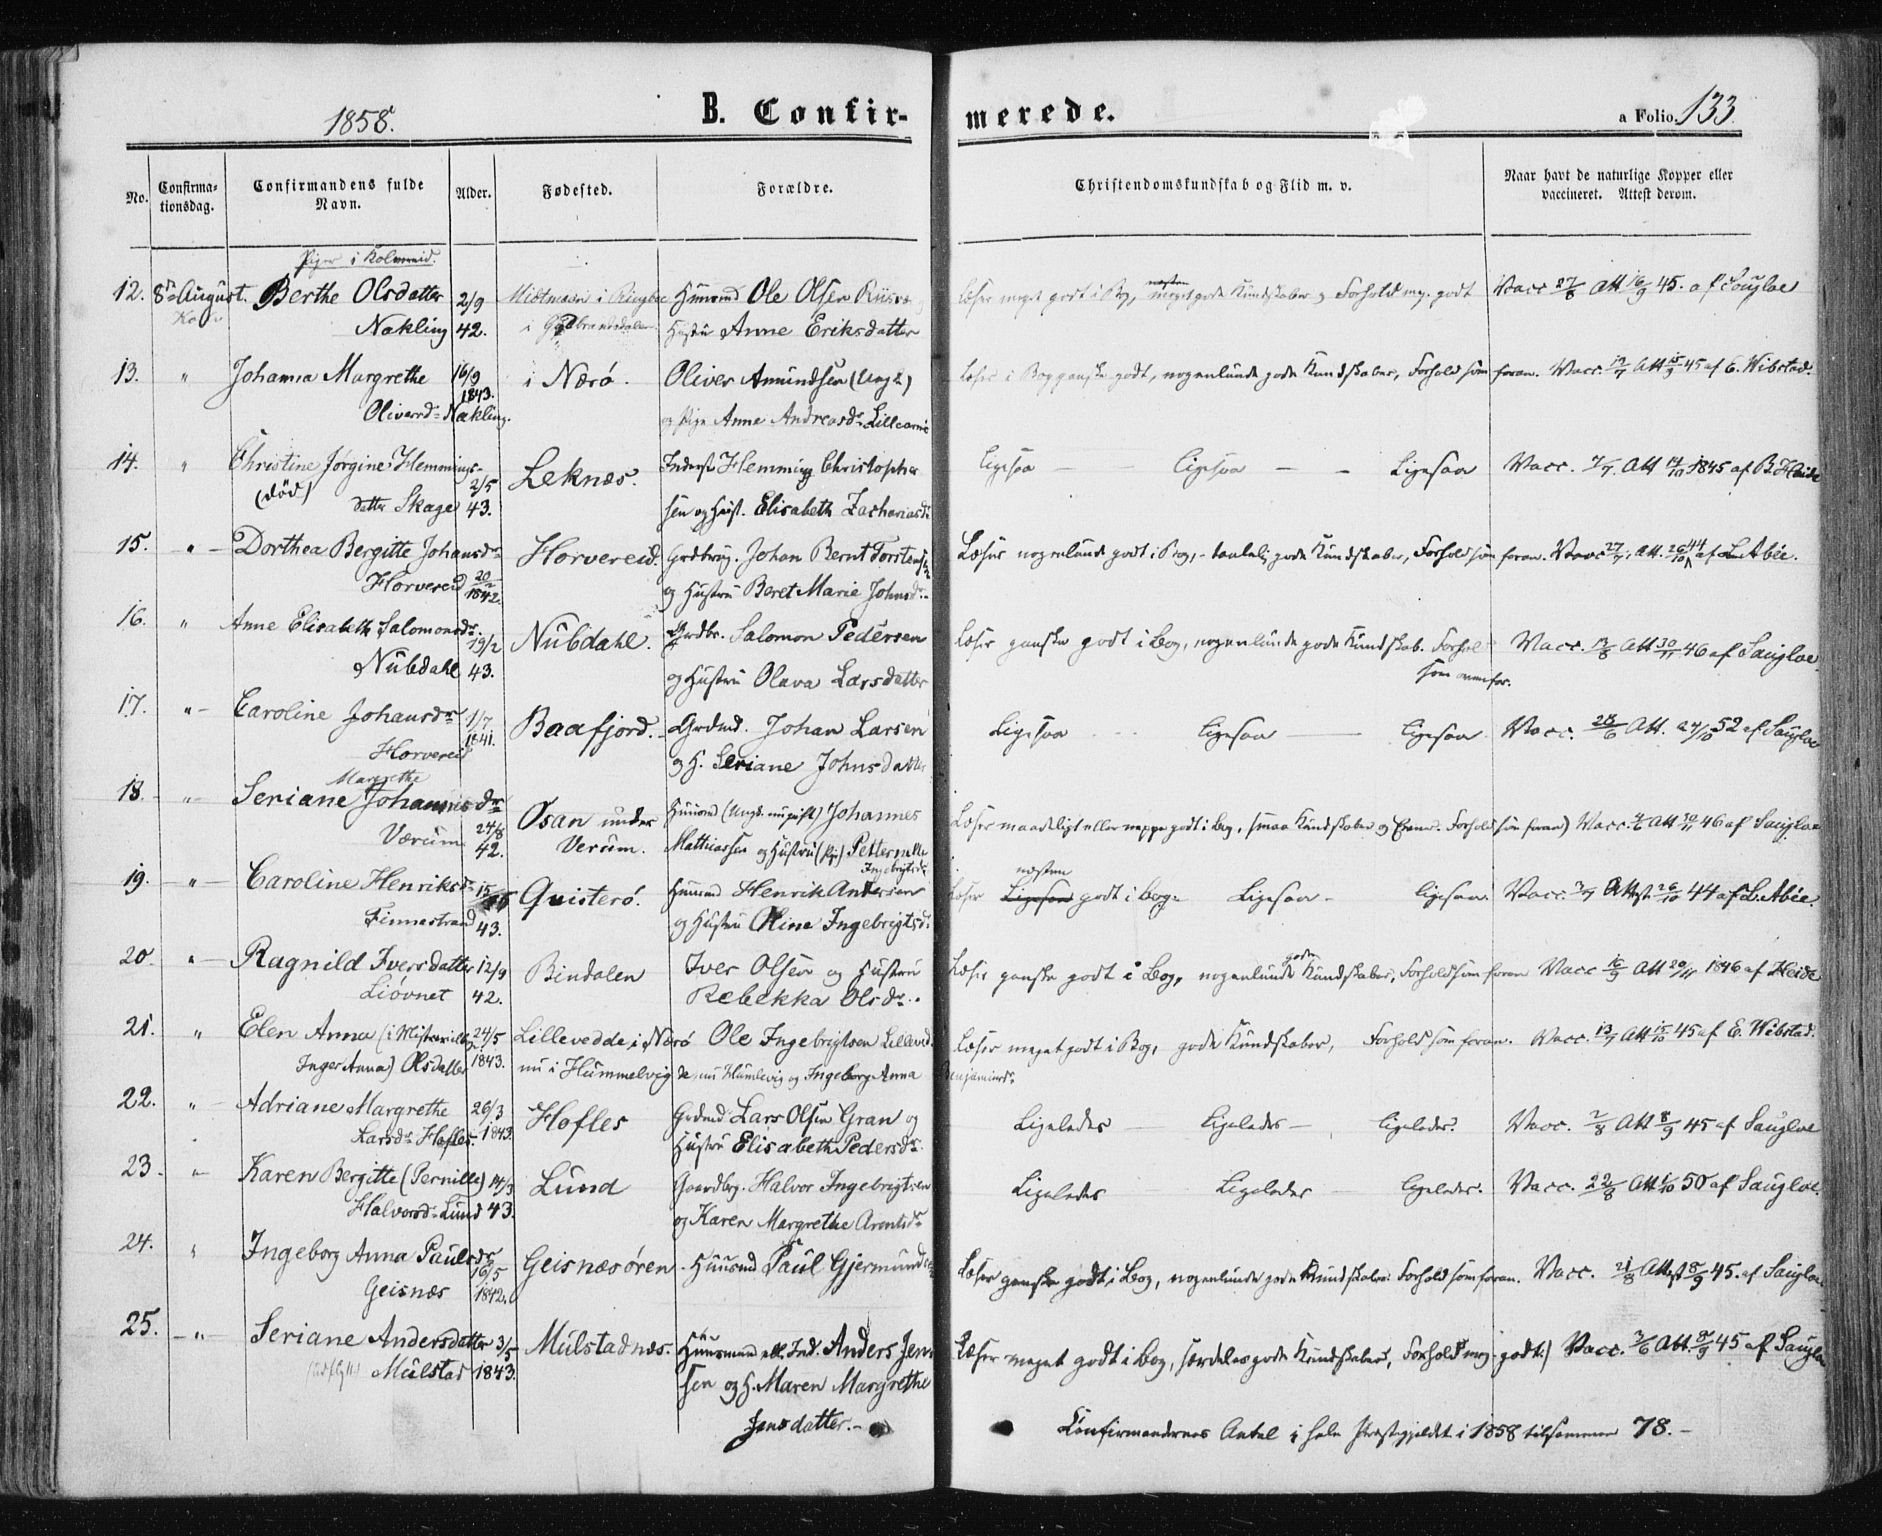 1858.
B. Confir-
merede.
a Folio. 133
No.
Confirma-
tionsdag.
Confirmandens fulde
Navn.
Alder.
Fødested.
Forældre.
Christendomskundskab og Flid m. v.
Naar havt de naturlige Kopper eller
vaccineret. Attest derom.
Piger i Kolvereid.
12. 8de August. Berthe Olsdatter 2/9 i Ringeboe Huusmd Ole Olsen
Nakling 42. i Gudbrandsdalen Hustru Anne Eriksdatter
læser meget godt i Bog, næsten meget gode Kundskaber og Forhold meg. godt Vacc 27/8 Att 16/9 45. af Saugloe
13. " Johanna Margrethe 16/9 i Nærø. Oliver Amundsen (Ungk.)
1843.
Oliversd= Nakling. og Pige Anne Andreasdr
læser i Bog ganske godt, nogenlunde gode Kundskaber, Forhold som foran. Vacc. 13/7 Att 15/9 45 af E. Wibstad.
14. " Christine Jørgine Flemmings- 2/5 Leknæs. Inderst Flemming Christopher
(død) datter Skage 43. sen og Hust. Elisabeth Zachariasdr
Ligesaa — Ligesaa — — Ligesaa Vacc. 7/7 Att 14/10 1845 af B. Heide
15. - " - Dorthea Bergitte Johansdr Horvereid. Grdbrug. Johan Bernt Torstensen
Horvereid 20/2 1842. og Hustru Beret Marie Johnsdr
Læser nogenlunde godt i Bog, - taalelig gode Kundskaber, Forhold som foran. Vacc 27/7, Att. 26/10 44 af L. Abée.
16. " Anne Elisabeth Salomonsdr 19/2 Nubdahl. Grdbr. Salomon Pedersen
Nubdahl 43. og Hustru Olava Larsdatter
Læser ganske godt i Bog, nogenlunde gode Kundskab. Forhold
som ovenfor. Vacc. 13/8 Att 30/11 46 af Saugloe
17. " - Caroline Johansdr 1/7 Baafjord. Grdmd. Johan Larsen
1841.
Horvereid og H. Seriane Johnsdatter
Ligesaa Ligesaa Ligesaa Vacc. 28/6 Att. 24/10 52 af Saugloe
18. - " - Seriane Margrethe Johannisdr Osan under Huusmd (Ungk. nu gift) Johannes
Værum 24/8 42. Verum. Mathiassen og Hustru (Pig.) Petternelle
Ingebrigtsdr
Læser maadeligt eller neppe godt i Bog, smaa Kundskaber og Evner. Forhold som foran) Vacc. Att 30/11 46 af Saugloe
19. - " - Caroline Henriksdr 15/ Quisterø. Huusmd Henrik Andersen
Finnestrand 43. og Hustru Oline Ingebrigtsdr
Læser næsten godt i Bog. Ligesaa - ligesaa. Vacc. 3/7 Attest 26/10 44 af L. Abée.
20. " - Ragnild Iversdatter 12/9 Bindalen Iver Olsen og Hustru
Liøvnet 42. Rebekka Olsdr.
Læser ganske godt i Bog, nogenlunde gode Kundskaber, Forhold som foran Vacc 16/9 Att 20/11 1846 af Heide
21. " Elen Anna (i Ministerialb. 24/5 Lillevedde, i Nærø Ole Ingebrigtsen Lilleved-
Inger Anna) Olsdatter 1843. nu i Hummelvig de, nu Humlevig og Ingeborg Anna
Benjaminsdr
Læser meget godt i Bog, gode Kundskaber, Forhold som foran. Vacc. 13/7 Att 15/10 45 af E. Wibstad.
22. " Adriane Margrethe 26/3 Hofles Grdmd Lars Olsen Gran og
Larsdr Hofles. 1843. Hustru Elisabeth Pedersdr.
Ligeledes Ligeledes — ligeledes. Vacc. 2/8 Att 8/9 45 af Saugloe
23. " Karen Bergitte (Pernille) 14/3 Lund Gaardbrg. Halvor Ingebrigtsen
Halvorsdr Lund 43. og Karen Margrethe Arentsdr
Ligeledes Ligeledes ligeledes. Vacc. 22/8 Att /10 50 af Saugloe.
24. " Ingeborg Anna Paulsdr 16/5 Geisnæsøren. Huusmd Paul Gjermundsen
Geisnæs 1842.
Læser ganske godt i Bog, nogenlunde gode Kundskaber Forhold som foran. Vacc. 21/8 Attest 8/9 45. af Saugloe
25. - " - Seriane Andersdatter 3/5 Mulstadnæs. Huusmand ell. Ind. Anders Jen-
Mulstad 1843. sen og H. Maren Margrethe
Jensdatter. -
Læser meget godt i Bog, særdeles gode Kundskaber, Forhold meg. godt.) Vacc. Att. 8/9 45 af Saugloe
Confirmandernes Antal i hele Præstegjeldet i 1858 tilsammen 78. -